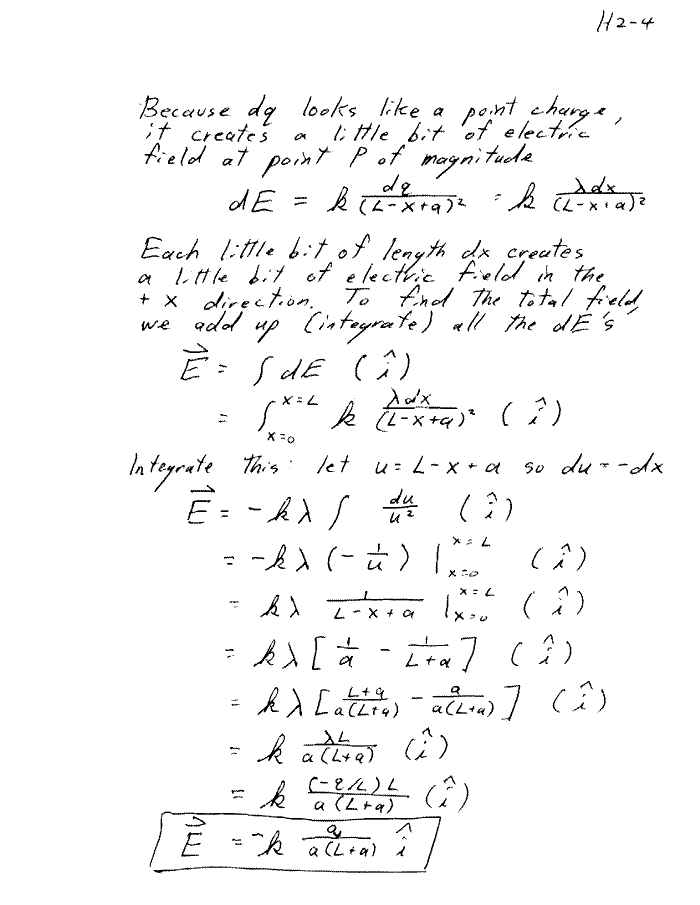 H2-4
Because dq looks like a point charge,
it creates a little bit of electric
field at point P of magnitude
dE = k dq/(L-x+a)² = k λdx/(L-x+a)²
Each little bit of length dx creates
a little bit of electric field in the
+ x direction. To find the total field,
we add up (integrate) all the dE's
E⃗ = ∫ dE (î)
= ∫_{x=0}^{x=L} k λdx/(L-x+a)² (î)
Integrate this: let u = L-x+a so du = -dx
E⃗ = -kλ ∫ du/u² (î)
= -kλ (-1/u) |_{x=0}^{x=L} (î)
= kλ 1/(L-x+a) |_{x=0}^{x=L} (î)
= kλ [1/a - 1/(L+a)] (î)
= kλ [(L+a)/(a(L+a)) - a/(a(L+a))] (î)
= k λL/(a(L+a)) (î)
= k (-q/L)L/(a(L+a)) (î)
E⃗ = -k q/(a(L+a)) î